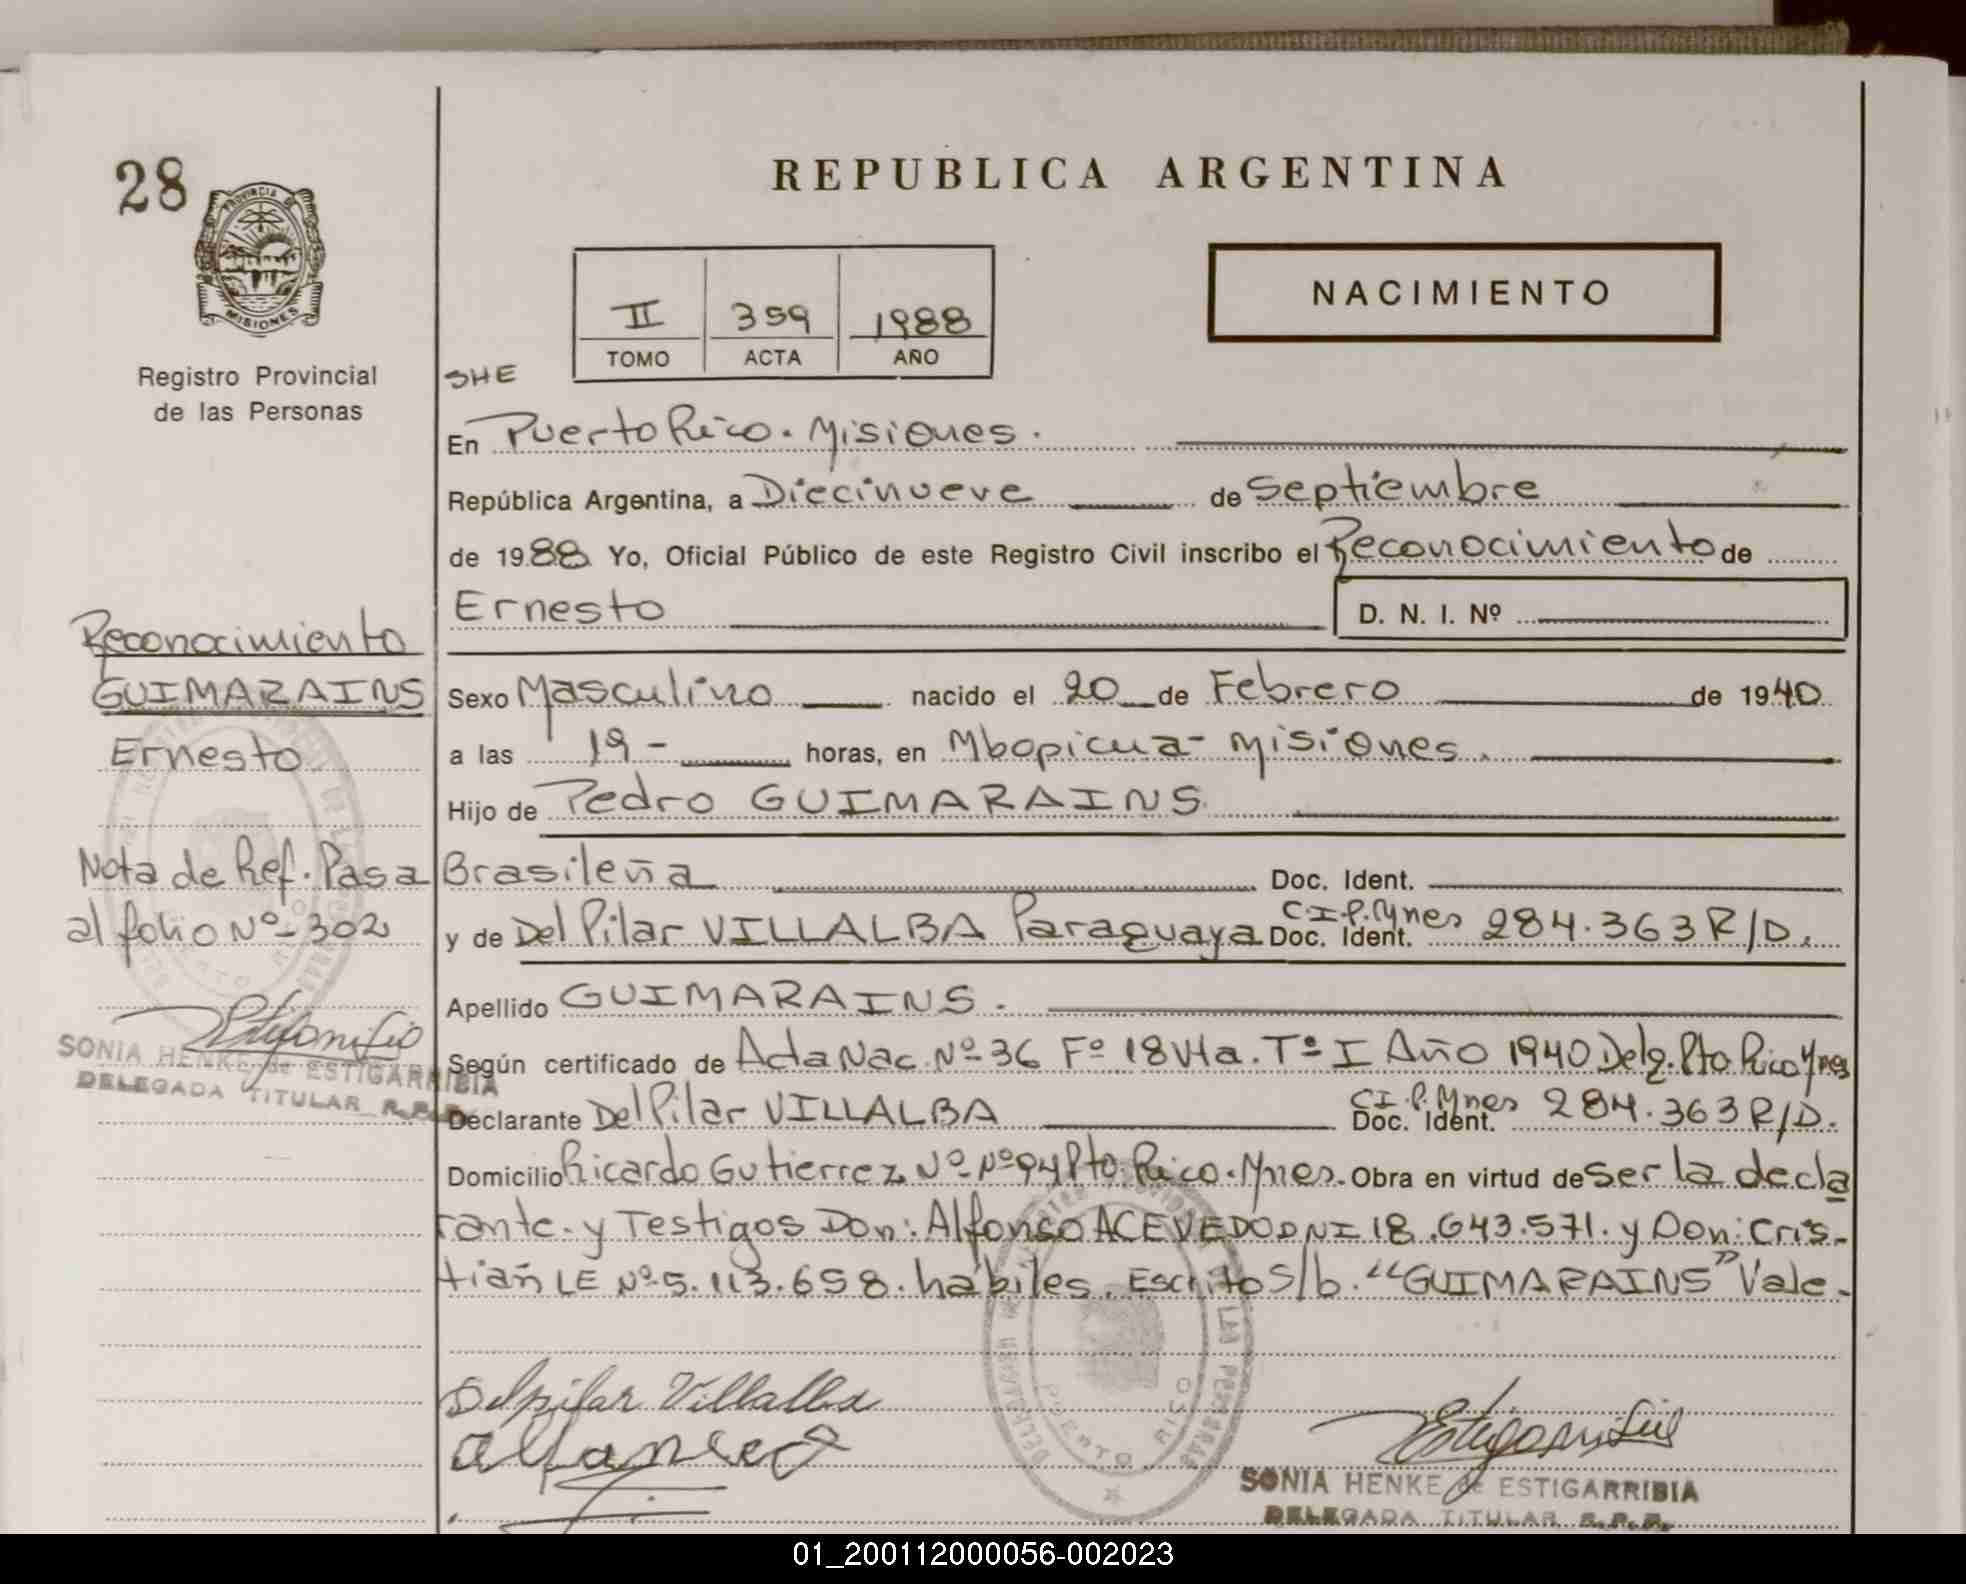 28
PROVINCIA DE
MISIONES
Registro Provincial
de las Personas
REPUBLICA ARGENTINA
II 359 1988
TOMO ACTA AÑO
NACIMIENTO
SHE
En Puerto Rico. Misiones.
República Argentina, a Diecinueve de Septiembre
de 1988 Yo, Oficial Público de este Registro Civil inscribo el Reconocimiento de
Ernesto D. N. I. Nº
Reconocimiento
GUIMARAINS
Ernesto
Sexo Masculino nacido el 20 de Febrero de 1940
a las 19- horas, en Mbopicua- Misiones.
Hijo de Pedro GUIMARAINS
Nota de Ref. Pasa
al folio Nº- 302
Brasileña Doc. Ident.
y de Del Pilar VILLALBA Paraguaya Doc. Ident. C.I.P.Mnes 284.363 R/D.
Apellido GUIMARAINS.
Según certificado de Acta Nac. Nº 36 Fº 18 Vta. Tº I Año 1940 Deleg. Pto Rico Mnes
SONIA HENKE de ESTIGARRIBIA
DELEGADA TITULAR R.P.P.
Declarante Del Pilar VILLALBA Doc. Ident. C.I.P.Mnes 284.363 R/D.
Domicilio Ricardo Gutierrez Nº 94 Pto. Rico. Mnes. Obra en virtud de ser la decla
rante. y Testigos Don: Alfonso ACEVEDO DNI 18.643.571. y Don: Cris-
tian LE Nº 5.113.658. hábiles. Escrito s/b. "GUIMARAINS" Vale.
PUERTO RICO
Delpilar Villalba
SONIA HENKE de ESTIGARRIBIA
DELEGADA TITULAR R.P.P.
01_200112000056-002023